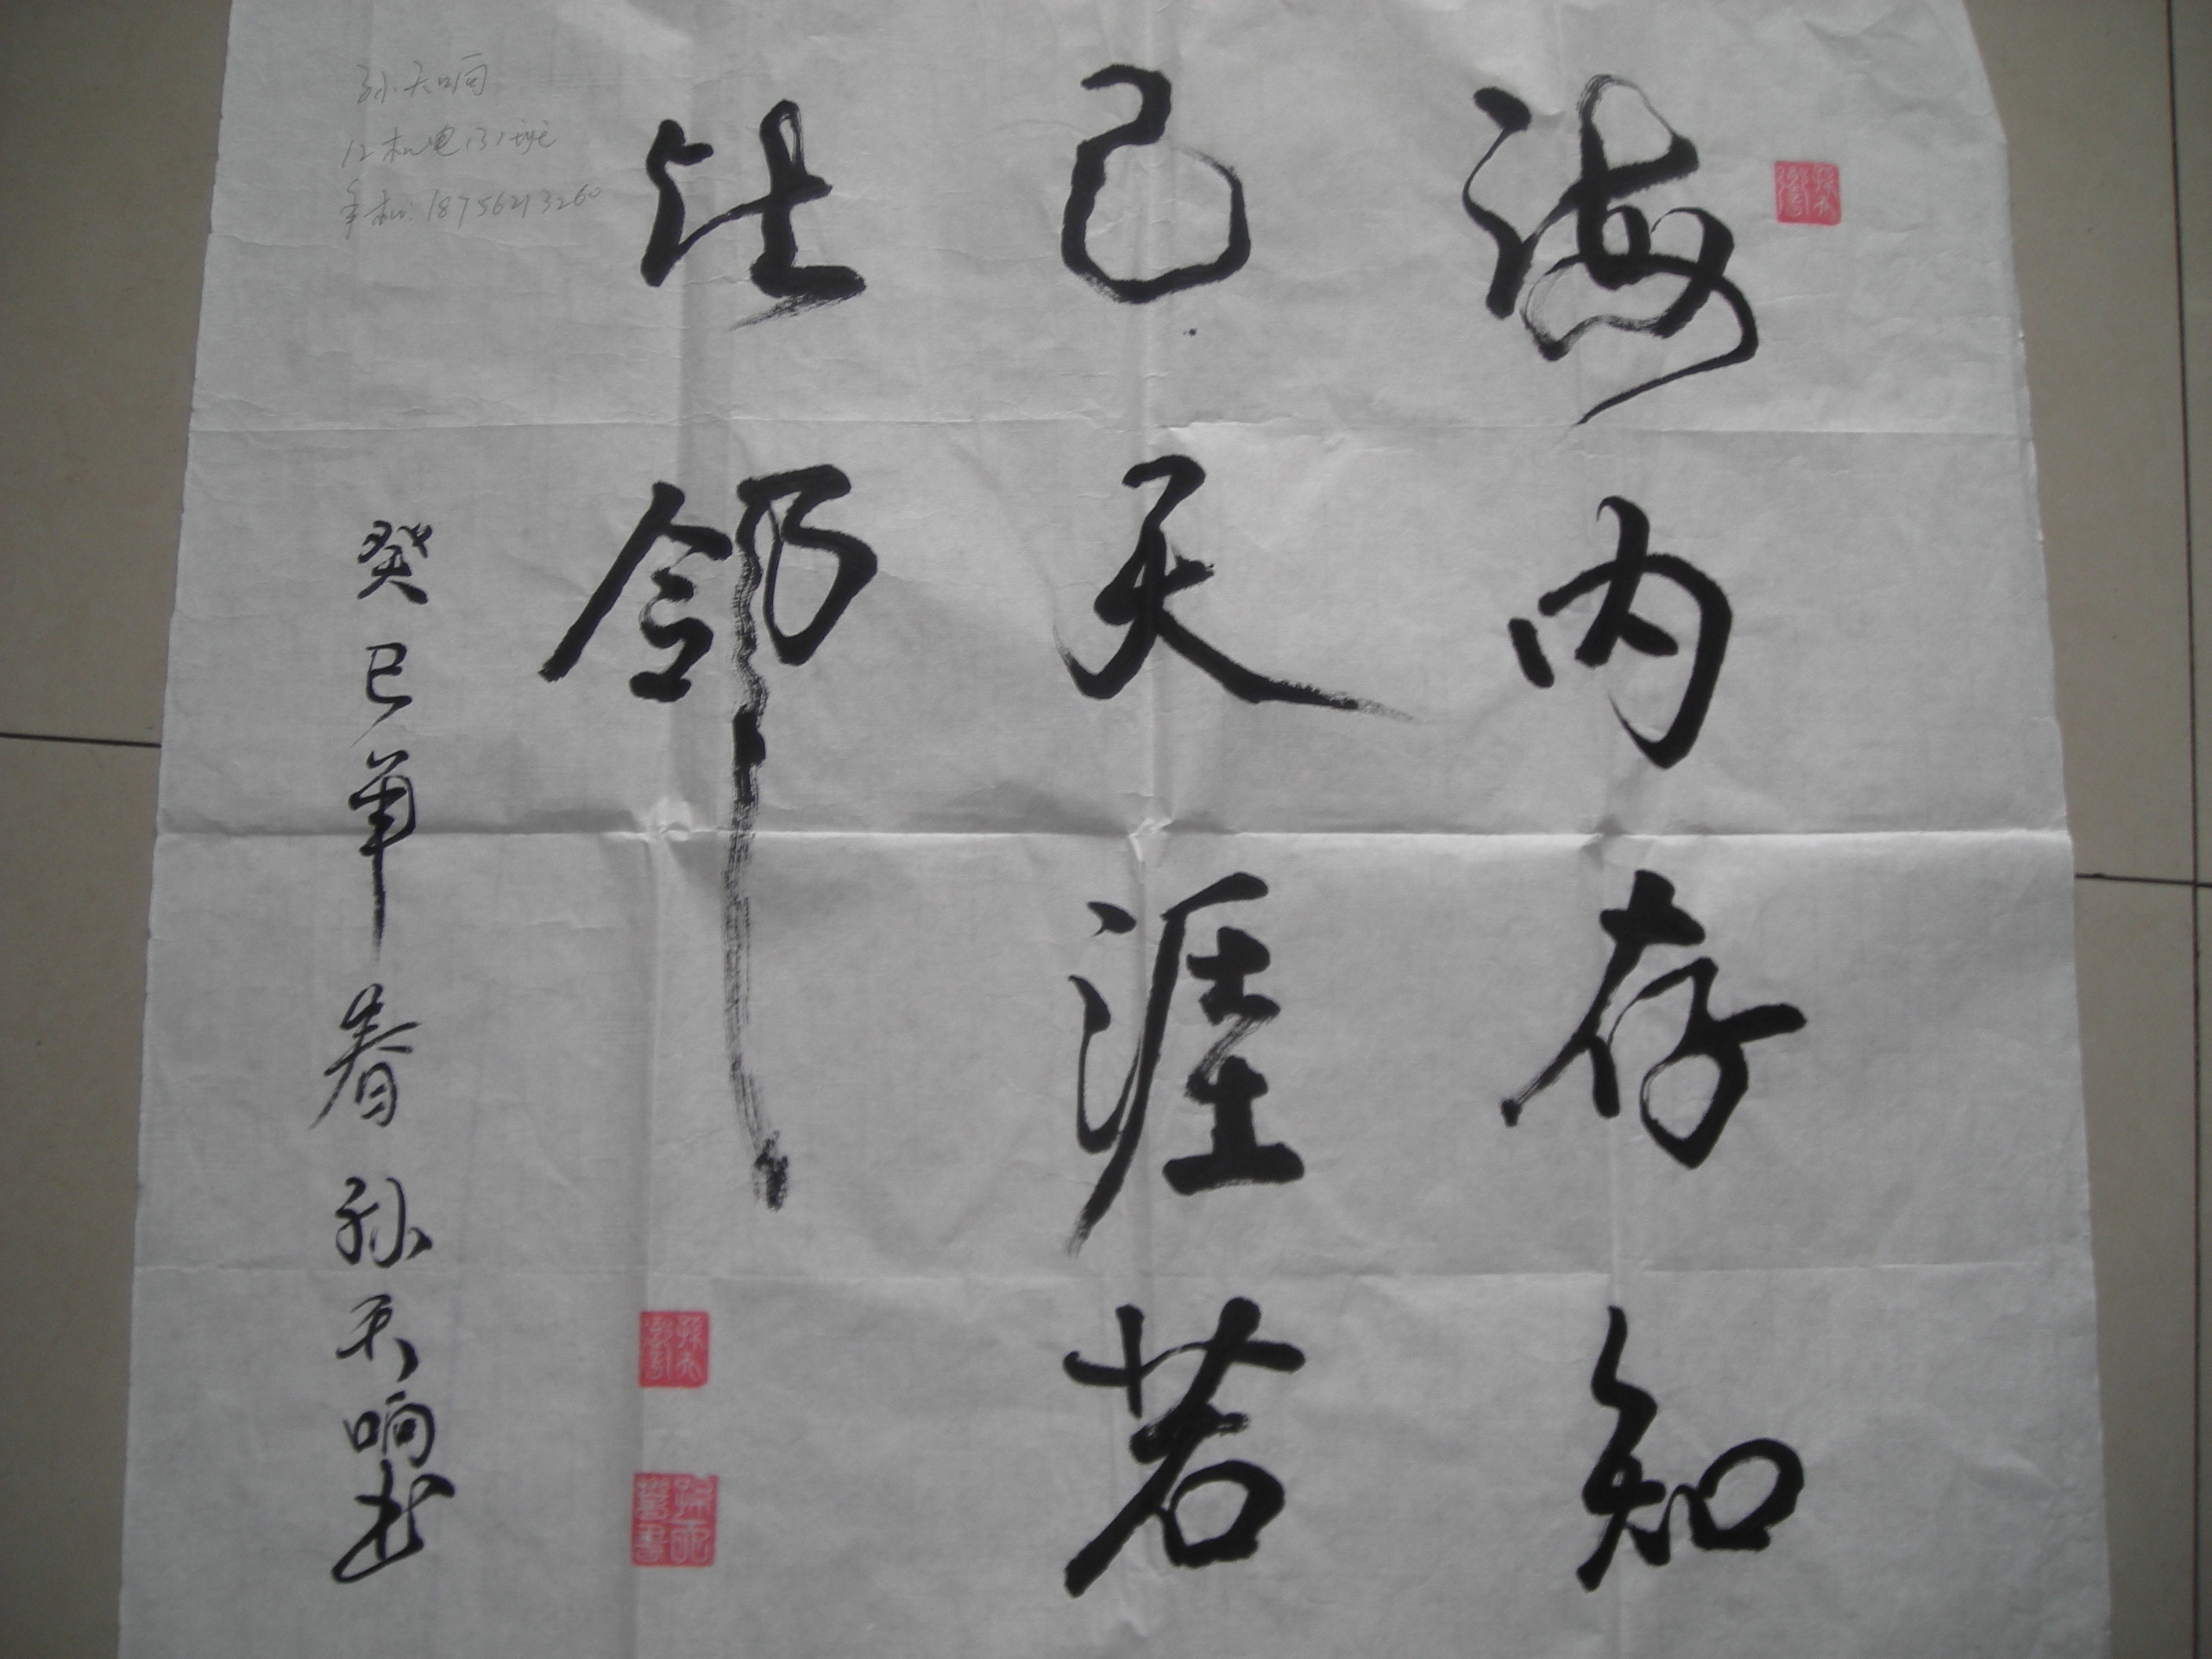 海内存知
己天涯若
比邻
癸巳年春孙天响书
孙天响
12机电(3)班
手机:18756213260